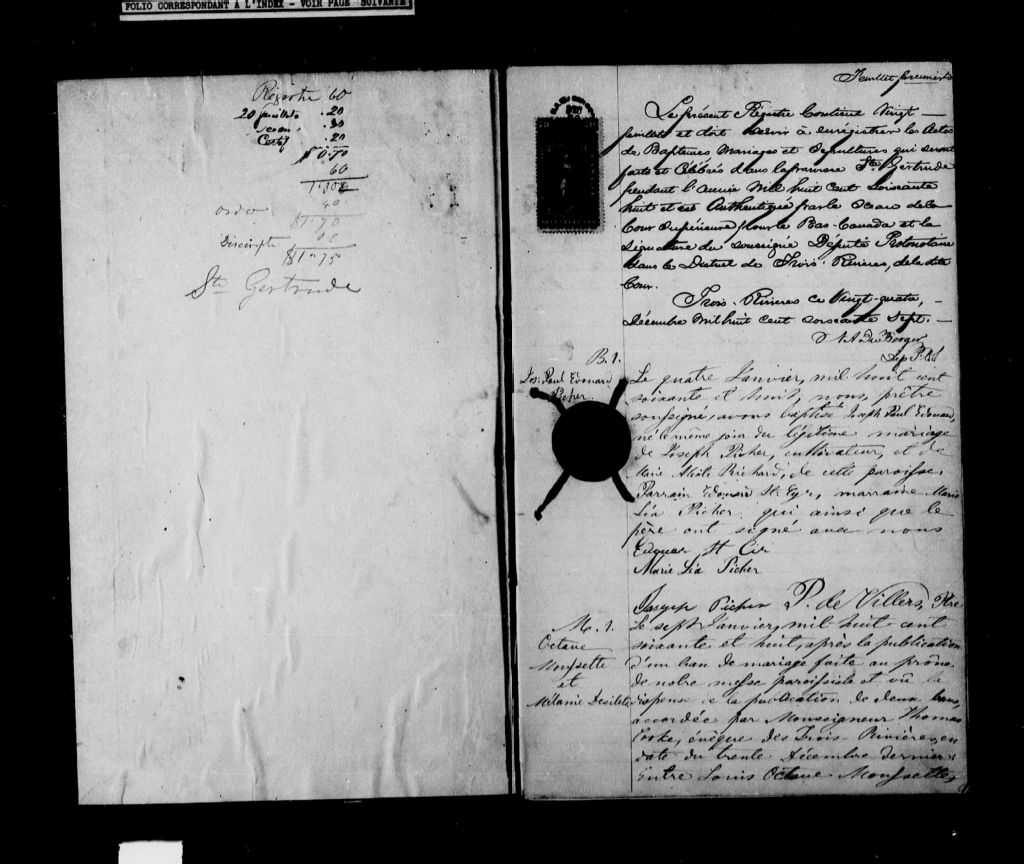 FOLIO CORRESPONDANT A L'INDEX - VOIR PAGE SUIVANTE
Registre 60
20 feuillets .20
.30
Certif .20
$0.70
60
1.30
ordo 40
$1.70
$1.75
Ste Gertrude
Feuillet premier
Le présent Régistre Contient Vingt
feuillets et doit servir à enrégistrer les Actes
de Baptêmes Mariages et Sepultures qui seront
faits et Célébrés dans la paroisse Ste Gertrude
pendant l'Année Mil huit Cent Soixante
huit et est Authentiqué par le Sceau de la
Cour Supérieure pour le Bas-Canada et la
Signature du soussigné Député Protonotaire
dans le District de Trois-Rivieres, de la dite
Cour.
Trois-Rivieres ce Vingt-quatre
Décembre Mil huit cent soixante Sept.
Berger
Dep P.
B. 1.
Jos: Paul Edouard
Picher.
Le quatre Janvier, mil huit cent
soixante et huit, nous, prêtre
soussigné, avons baptisé Joseph Paul Edouard,
né le même jour du légitime mariage
de Joseph Picher, cultivateur, et de
Marie Richard, de cette paroisse.
Parrain Edouard St. Cyr, marraine Marie
Léa Picher qui ainsi que le
père ont signé avec nous
St Cir
Marie Léa Picher
Picher P. de Villers, Ptre
M. 1.
Octave
Moussette
et
Mélanie Désilets
Le sept Janvier, mil huit cent
soixante et huit, après la publication
d'un ban de mariage faite au prône
de notre messe paroissiale et vû la
dispense de la publication de deux bans,
accordée par Monseigneur Thomas
Cooke, évêque des Trois-Rivières, en
date du trente Décembre dernier,
Entre Louis Octave Moussette,